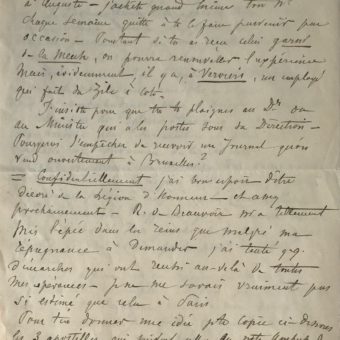 d'Auguste — j'achète quand même ton No
chaque semaine quitte à te le faire parvenir par
occasion — Pourtant si tu as reçu celui garni
de la Meuse, on pourra renouveler l'expérience
Mais, évidemment, il y a, à Verviers, un employé
qui fait du Zèle à côté.
J'insiste pour que tu te plaignes au Dr ou
au Ministre qui a les postes sous sa Direction —
Pourquoi t'empêcher de recevoir un Journal qu'on
vend ouvertement à Bruxelles?
= Confidentiellement j'ai bon espoir d'être
décoré de la Légion d'Honneur — et assez
prochainement — R. de Beauvoir m'a tellement
mis l'épée dans les reins que malgré ma
répugnance à demander j'ai tenté q.q.
démarches qui ont réussi au-delà de toutes
mes espérances — je ne me savais vraiment pas
si estimé que cela à Paris
Pour t'en donner une idée copie ci-dessous
les 3 apostilles qui